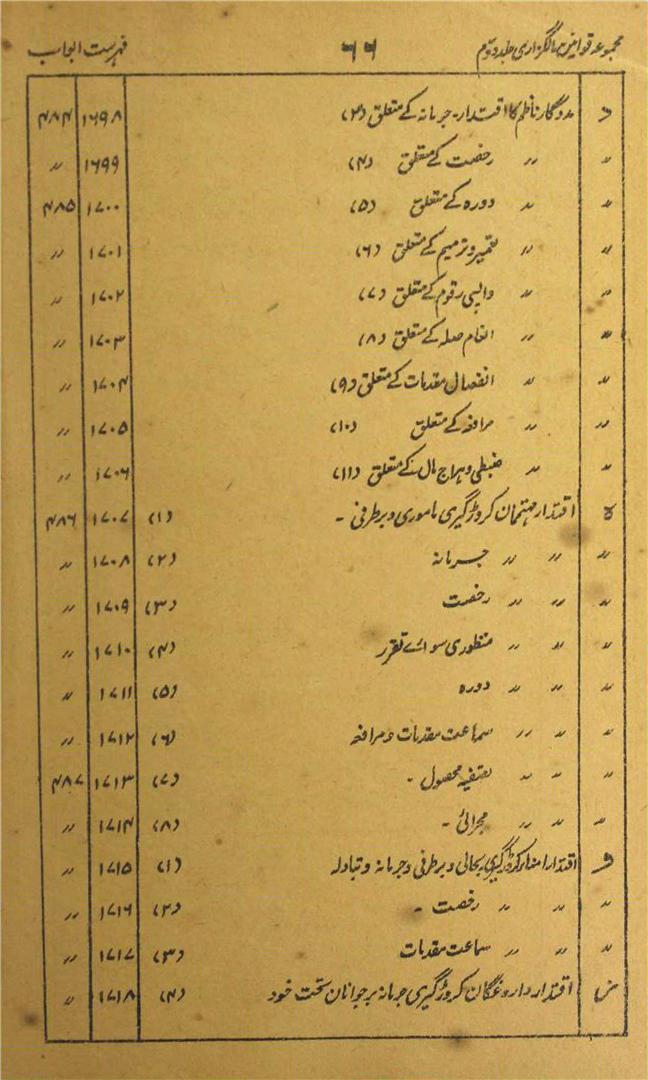 مجموعہ قوانین مالگزاری جلد دوم ۶۶ فہرست ابواب
د مددگار ناظم کا اقتدار۔ جرمانہ کے متعلق (۳) ۱۶۹۸ ۴۸۴
〃 〃 رخصت کے متعلق (۴) ۱۶۹۹ 〃
〃 〃 دورہ کے متعلق (۵) ۱۷۰۰ ۴۸۵
〃 〃 تعمیر و ترمیم کے متعلق (۶) ۱۷۰۱ 〃
〃 〃 واپسی رقوم کے متعلق (۷) ۱۷۰۲ 〃
〃 〃 انعام صلہ کے متعلق (۸) ۱۷۰۳ 〃
〃 〃 انفصال مقدمات کے متعلق (۹) ۱۷۰۴ 〃
〃 〃 مرافعہ کے متعلق (۱۰) ۱۷۰۵ 〃
〃 〃 ضبطی و ہراج مال کے متعلق (۱۱) ۱۷۰۶ 〃
ہ اقتدار مہتممان کروڑگیری ماموری و برطرفی ۔ (۱) ۱۷۰۷ ۴۸۶
〃 〃 〃 〃 جرمانہ (۲) ۱۷۰۸ 〃
〃 〃 〃 〃 رخصت (۳) ۱۷۰۹ 〃
〃 〃 〃 〃 منظوری سوائے تقرر (۴) ۱۷۱۰ 〃
〃 〃 〃 〃 دورہ (۵) ۱۷۱۱ 〃
〃 〃 〃 〃 سماعت مقدمات و مرافعہ (۶) ۱۷۱۲ 〃
〃 〃 〃 〃 تصفیہ محصول ۔ (۷) ۱۷۱۳ ۴۸۷
〃 〃 〃 مجرائی ۔ (۸) ۱۷۱۴ 〃
و اقتدار امنائے کروڑگیری بحالی و برطرفی و جرمانہ و تبادلہ (۱) ۱۷۱۵ 〃
〃 〃 〃 رخصت ۔ (۲) ۱۷۱۶ 〃
〃 〃 〃 سماعت مقدمات (۳) ۱۷۱۷ 〃
اقتدار داروغگان کروڑگیری جرمانہ بر جوانان تحت خود (۴) ۱۷۱۸ 〃